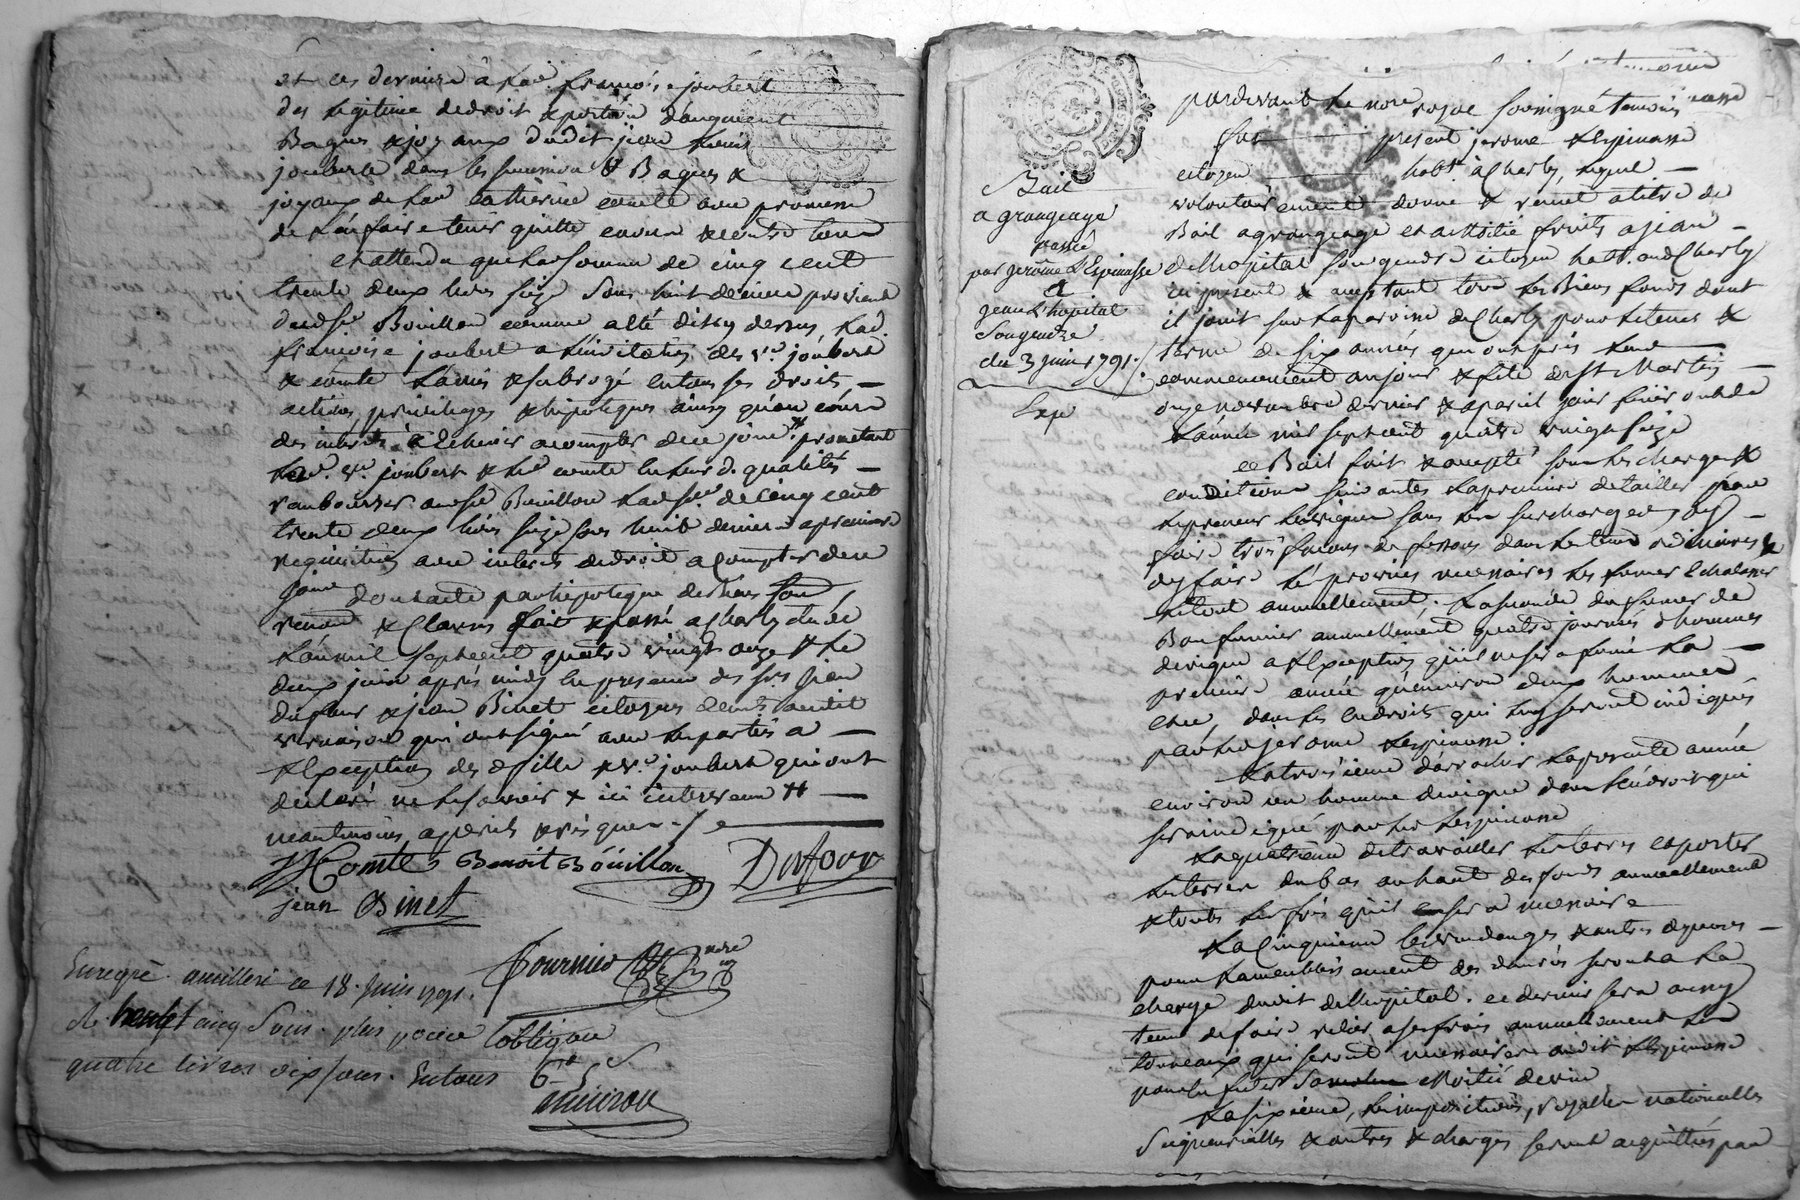 et ces derniers à lad françoise joubert
des legitime de droit & portion d'augment
Bagues & joyaux dudit jean
jouberte dans les succession & Bagues &
joyaux de lad catherine comte avec promesse
de l'en faire tenir quitte envers & contre tous
et attendu que la somme de cinq cent
trente deux livres seize sous huit deniers provient
dud sr Bouillon comme a été dit cy dessus, lad.
françoise joubert a l'invitation des vve joubert
& comte l'a mis & subrogé en tous ses droits
actions privileges & hipoteques ainsy qu'au cours
des interets à echeoir a compter de ce jour prometant
lad. vve joubert & led comte en leur d. qualités
rembourser aud sr Bouillon lad sme de cinq cent
trente deux livres seize sous huit deniers a premiere
requisition avec interets de droit a compter de ce
jour dont acte par hipoteque de biens
renon & clauses fait & passé a Charly étude
l'an mil sept cent quatre vingt onze & le
deux juin après midy en presence des srs jean
dufour & jean Binet citoyens demts audit
vernaison qui ont signé avec les parties a
l'exception des fille & vve joubert qui ont
declaré ne le savoir & ici intervenu
neantmoins, a perils & risques
Comte Benoit Bouillon Dufour
jean Binet
Fournier nore
Enregré. a milleri ce 18. juin 1791.
cinq sous. plus pour l'obligon
quatre livres dix sous. En tous
6tt 5s
Bail
a grangeage
passé
par jerôme L'Espinasse
a
jean L'hopital
son gendre
du 3 juin 1791.
Exp
pardevant le nore royal soussigné temoins
fut present jerome Lespinasse
citoyen habt à Charly, lequel
volontairement donne & remet a titre de
Bail a grangeage et a moitié fruits a jean
delhopital son gendre citoyen habt. aud Charly
cy present & acceptant tous les Biens fonds dont
il jouit sur la paroisse de Charly pour le tems &
terme de six années qui ont pris leur
commencement au jour & fete de st Martin
onze novembre dernier & a pareil jour finiront de
l'année mil sept cent quatre vingt seize
ce Bail fait & accepté sous les charges &
conditions suivantes la premiere de tailler par le
preneur les vignes sans les surcharger, d'y
faire trois façons de fessous dans les tems ordinaires &
d'y faire les provins necessaires les fumer echalasser
le tout annuellement; la seconde de fumer de
Bon fumier annuellement quatre journées d'hommes
de vigne a l'exception qu'il ne sera fumé la
premiere année qu'environ deux hommes
et ce, dans les endroits qui luy seront indiqués
par led jerome Lespinasse.
La troisieme d'arracher la presente année
environ un homme de vigne dans l'endroit qui
sera indiqué par led Lespinasse
La quatrieme de travailler les terres et porter
les terres du bas au haut des fonds annuellement
& toutes les fois qu'il sera necessaire
La Cinquieme les vendanges & autres depenses
pour l'ameublissement des denrées seront a la
charge dudit delhopital. ce dernier sera aussy
tenu de faire relier a ses frais annuellement les
tonneaux qui seront necessaires audit Lespinasse
pour sa moitié de vin
La sixieme, les impositions, royalles nationalles
seigneurialles & autres & charges seront acquittées par